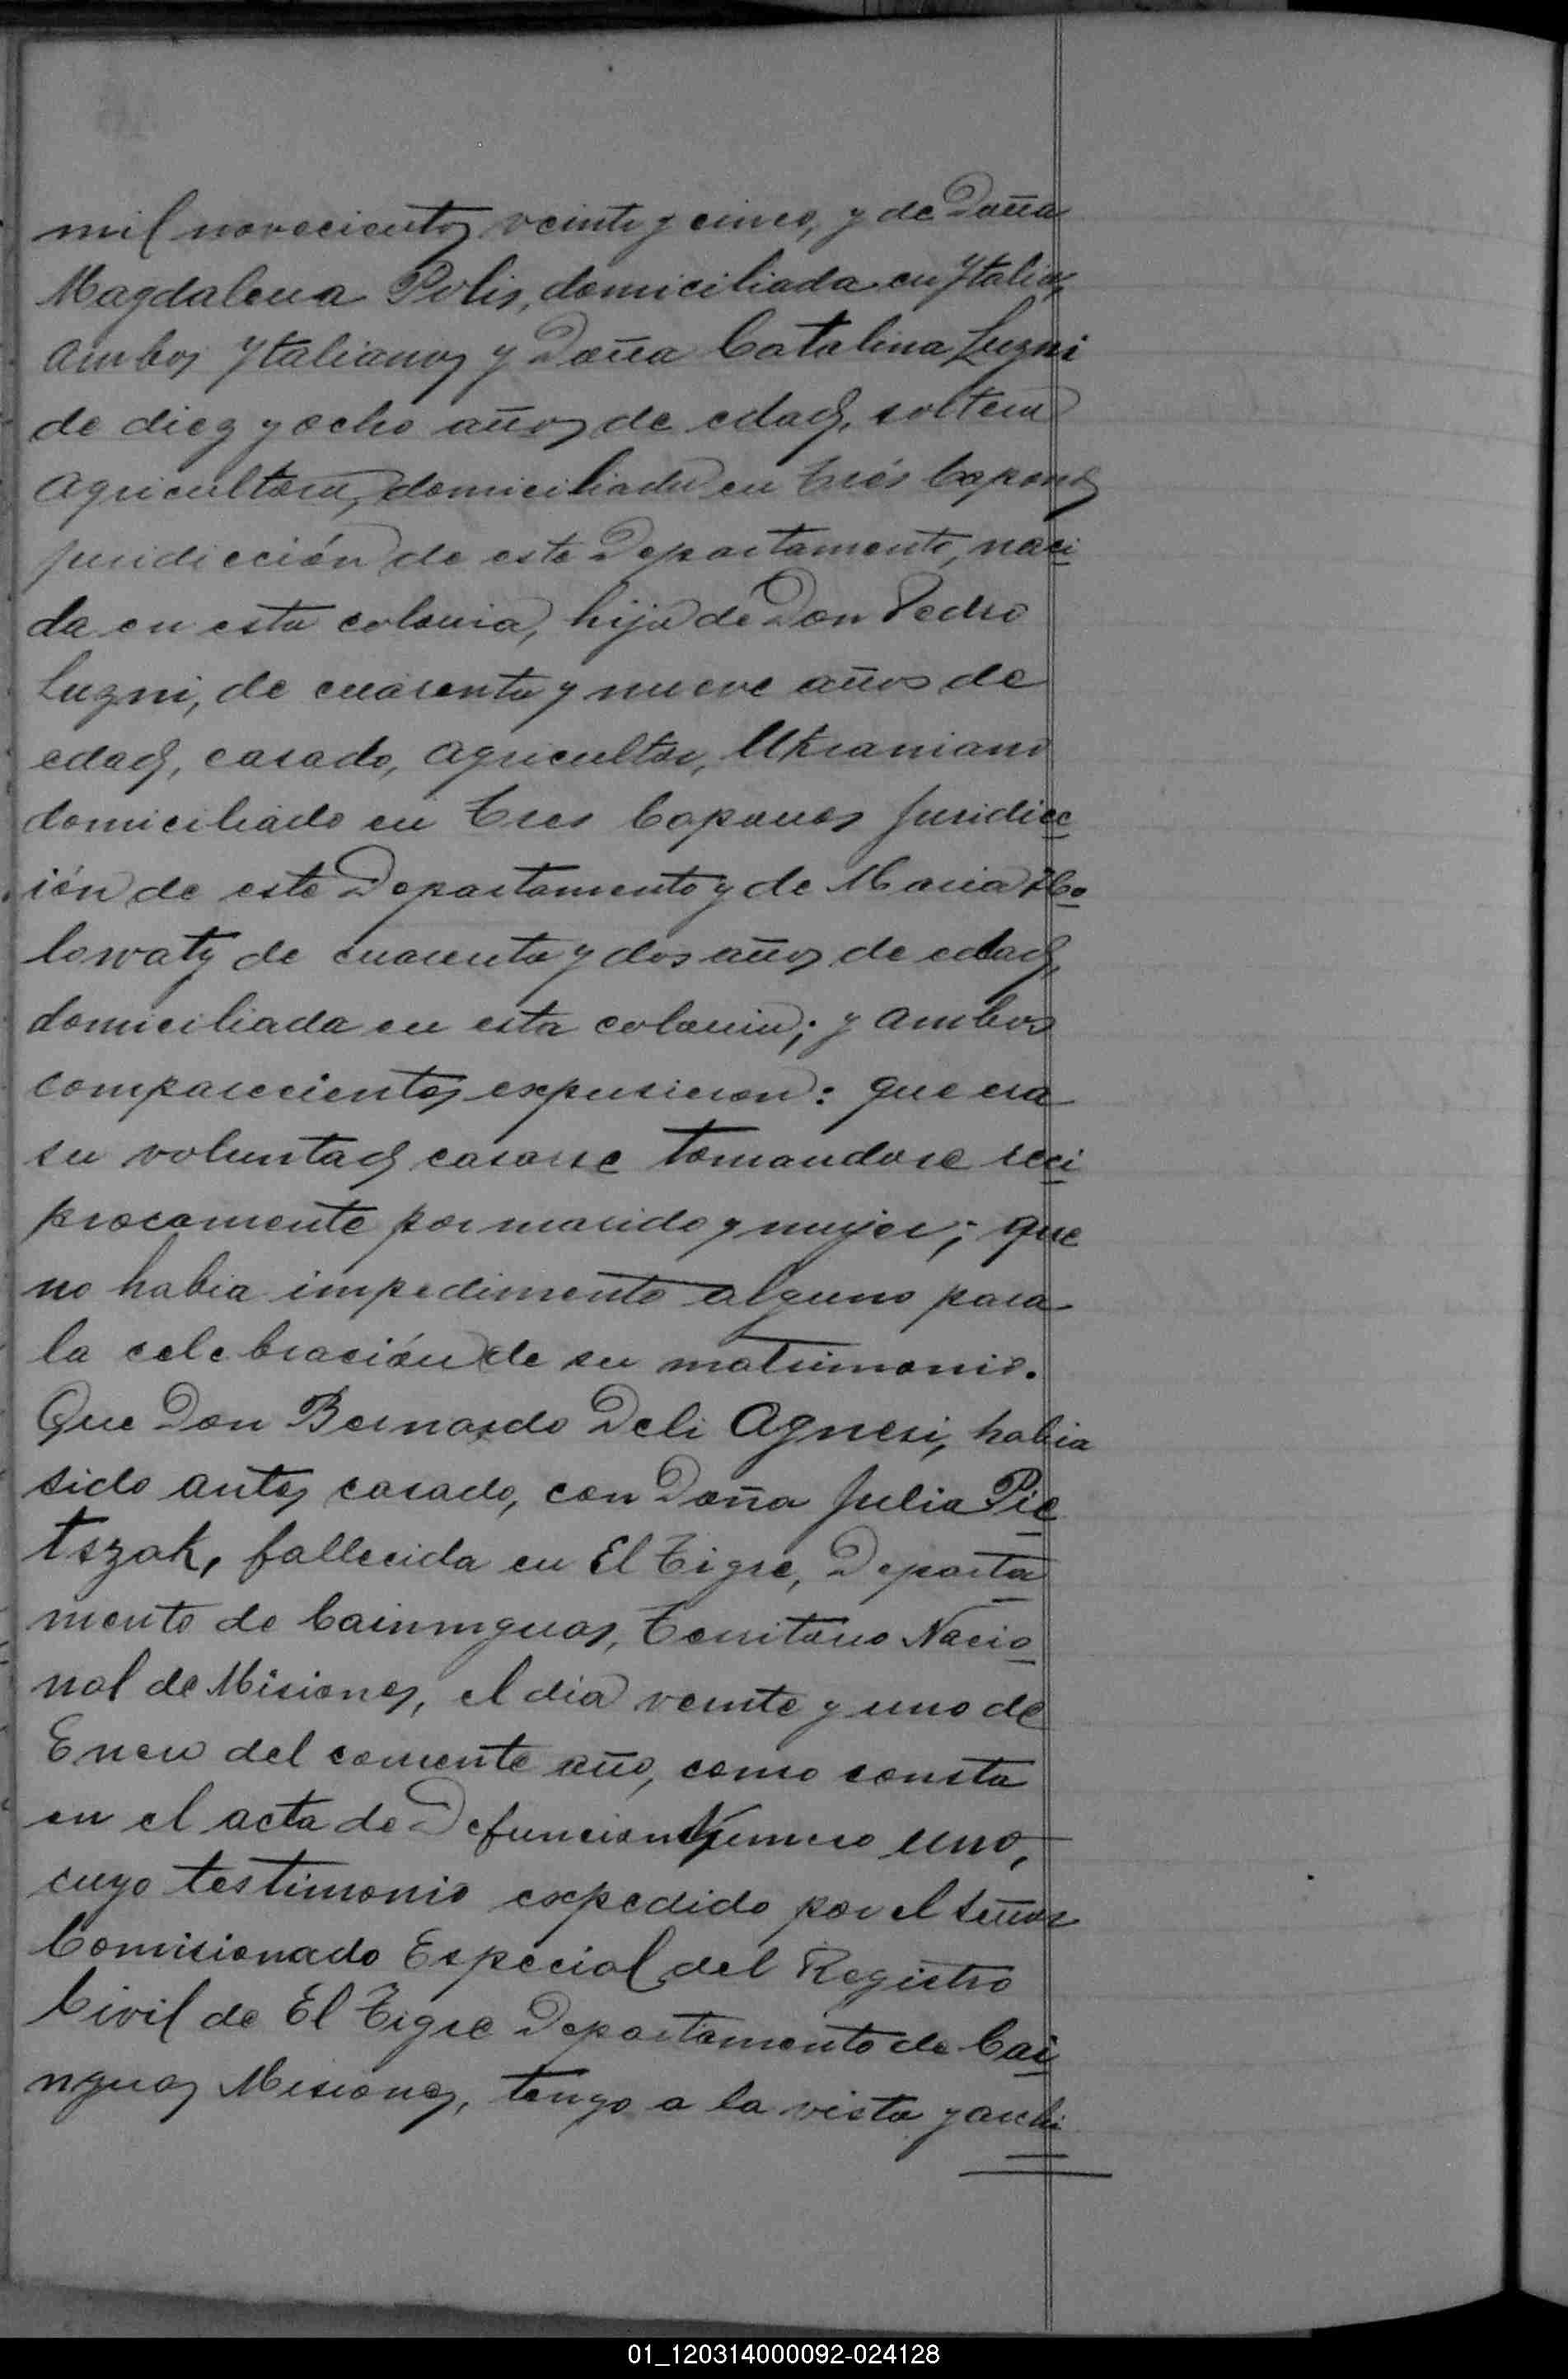 mil novecientos veinte y cinco, y de Doña
Magdalena Polis, domiciliada en Ytalia,
ambos Ytalianos y Doña Catalina Luzni
de diez y ocho años de edad, soltera
agricultora, domiciliada en Trés Capones
juridicción de este Departamento, naci
da en esta colonia, hija de Don Pedro
Luzni, de cuarenta y nueve años de
edad, casado, agricultor, Ukraniano
domiciliado en Tres Capones juridicc
ión de este Departamento y de Maria
lowaty de cuarenta y dos años de edad,
domiciliada en esta colonia; y ambos
comparecientes expusieron: que era
su voluntad casarse tomandose reci
procamente por marido y mujer; que
no habia impedimento alguno para
la celebración de su matrimonio.
Que Don Bernardo Deli Agnesi, habia
sido antes casado, con Doña Julia Pie
tszak, fallecida en El Tigre, Departa
mento de Cainmguas, Territorio Nacio
nal de Misiones, el dia veinte y uno de
Enero del corriente año, como consta
en el acta de Defuncion Numero uno,
cuyo testimonio expedido por el Señor
Comisionado Especial del Registro
Civil de El Tigre Departamento de Cai
nguas Misiones, tengo a la vista y archi
01_120314000092-024128